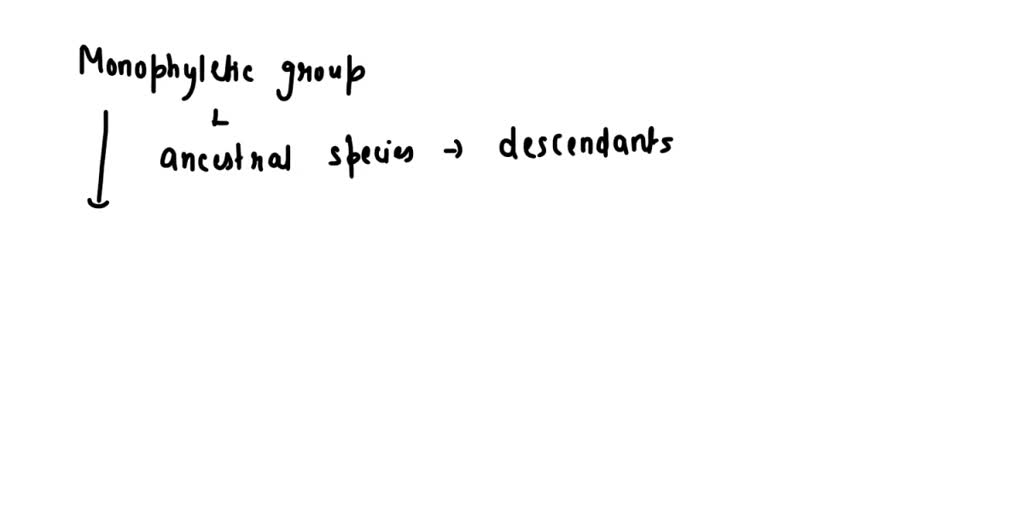 Monophyletic group
ancestral species → descendants